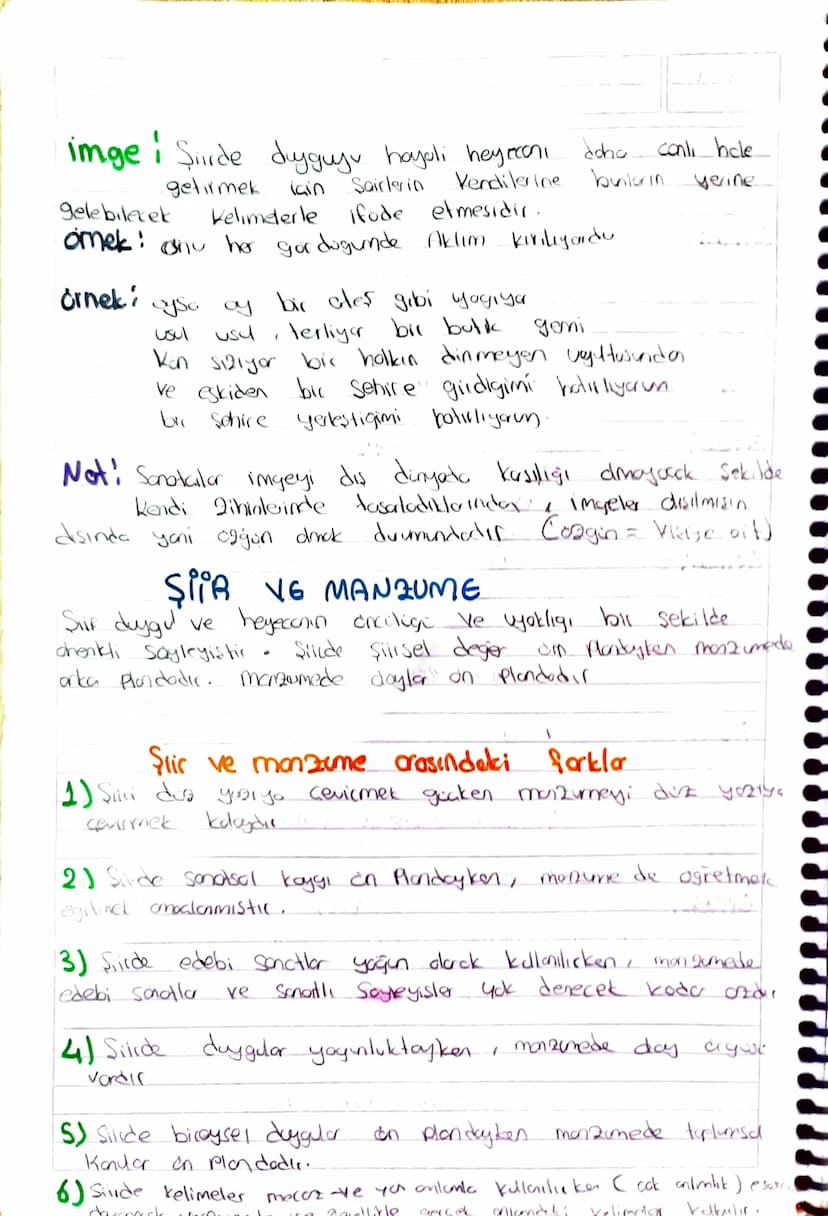 imge : Şiirde duyguyu hayali heyecanı daha canlı hale
getirmek için Şairlerin Kendilerine bunların yerine
gelebilecek kelimelerle ifade etmesidir.
örnek : onu her gordugunde Aklım kırılıyordu
örnek : oysa ay bir ateş gibi yagıyor
usul usul, terliyor bir batık gemi
Kan sızıyor bir halkın dinmeyen
ve eskiden bir şehire girdigimi hatırlıyorum
bir şehire yerleştigimi hatırlıyorum.
Not : Sanatcılar imgeyi dış dünyada karşılığı olmayacak şekilde
kendi zihinlerinde tasarladıklarından, imgeler
dısında yani özgün olmak durumundadır (özgin = ait)
ŞİİR VE MANZUME
Şiir duygu ve heyecanın ve bir sekilde
ahenkli söyleyiştir. Şiirde Şiirsel deger ön Plandayken manzumede
arka Plandadır. manzumede olaylar ön plandadır
Şiir ve manzume arasındaki farklar
1) Şiiri düz yazıya cevirmek gücken manzumeyi düz yazıya
cevirmek kolaydır
2) Şiirde sanatsal kaygı ön Plandayken, manzume de ögretmek
amaclanmıstır.
3) Şiirde edebi sanatlar yoğun olarak kullanılırken, manzumede
edebi sanatlar ve sanatlı Söyleyisler yok denecek kadar azdır
4) Şiirde duygular yogunluktayken, manzumede olay
vardır
5) Şiirde bireysel duygular ön plandayken manzumede toplumsal
Konular ön plandadır.
6) Şiirde kelimeler mecaz ve yan anlamda kullanılırken (cok anlamlılık)
genellikle gercek anlamdaki kelimeler kullanılır.